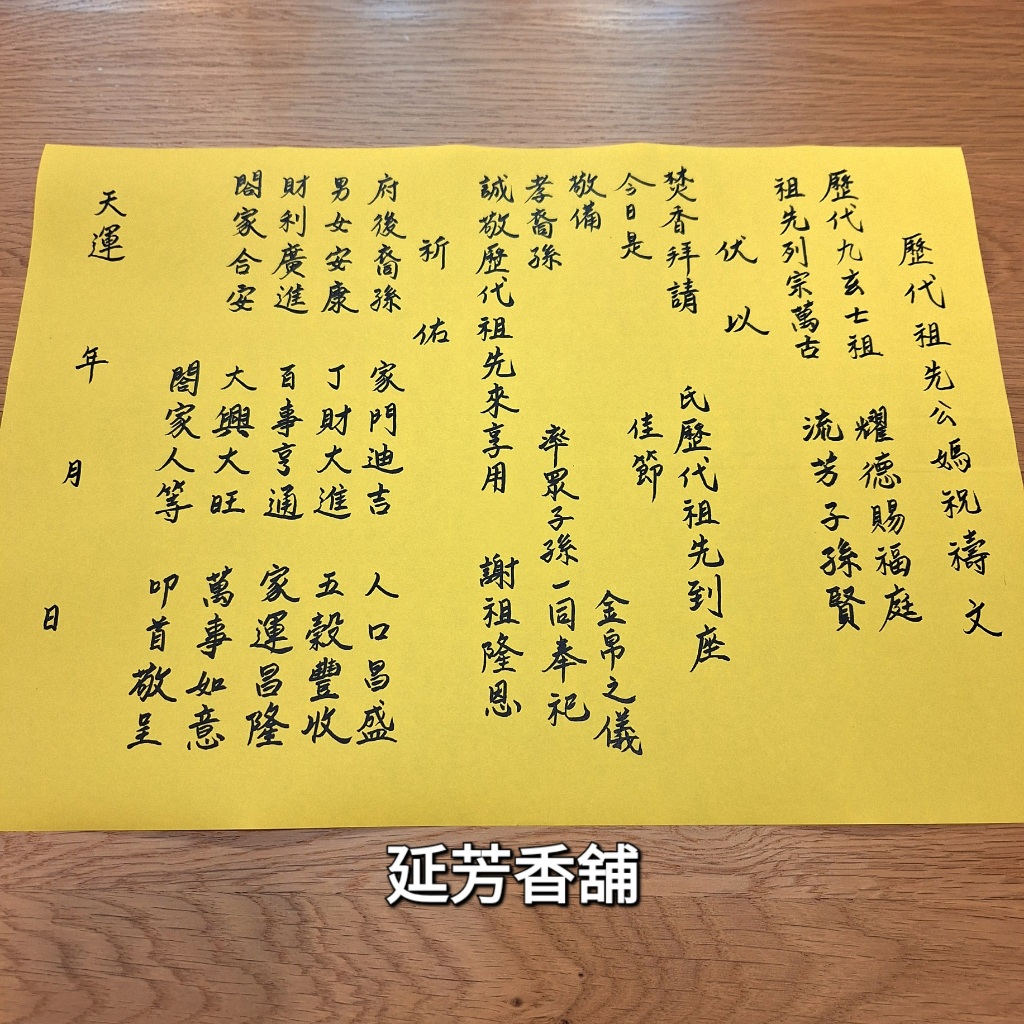 歷代祖先公媽祝禱文
歷代九玄七祖 耀德賜福庭
祖先列宗萬古 流芳子孫賢
伏以
焚香拜請 氏歷代祖先到座
今日是 佳節
敬備 金帛之儀
孝裔孫 率眾子孫一同奉祀
誠敬歷代祖先來享用 謝祖隆恩
祈佑
府後裔孫 家門迪吉 人口昌盛
男女安康 丁財大進 五穀豐收
財利廣進 百事亨通 家運昌隆
閤家合安 大興大旺 萬事如意
閤家人等 叩首敬呈
天運 年 月 日
延芳香舖